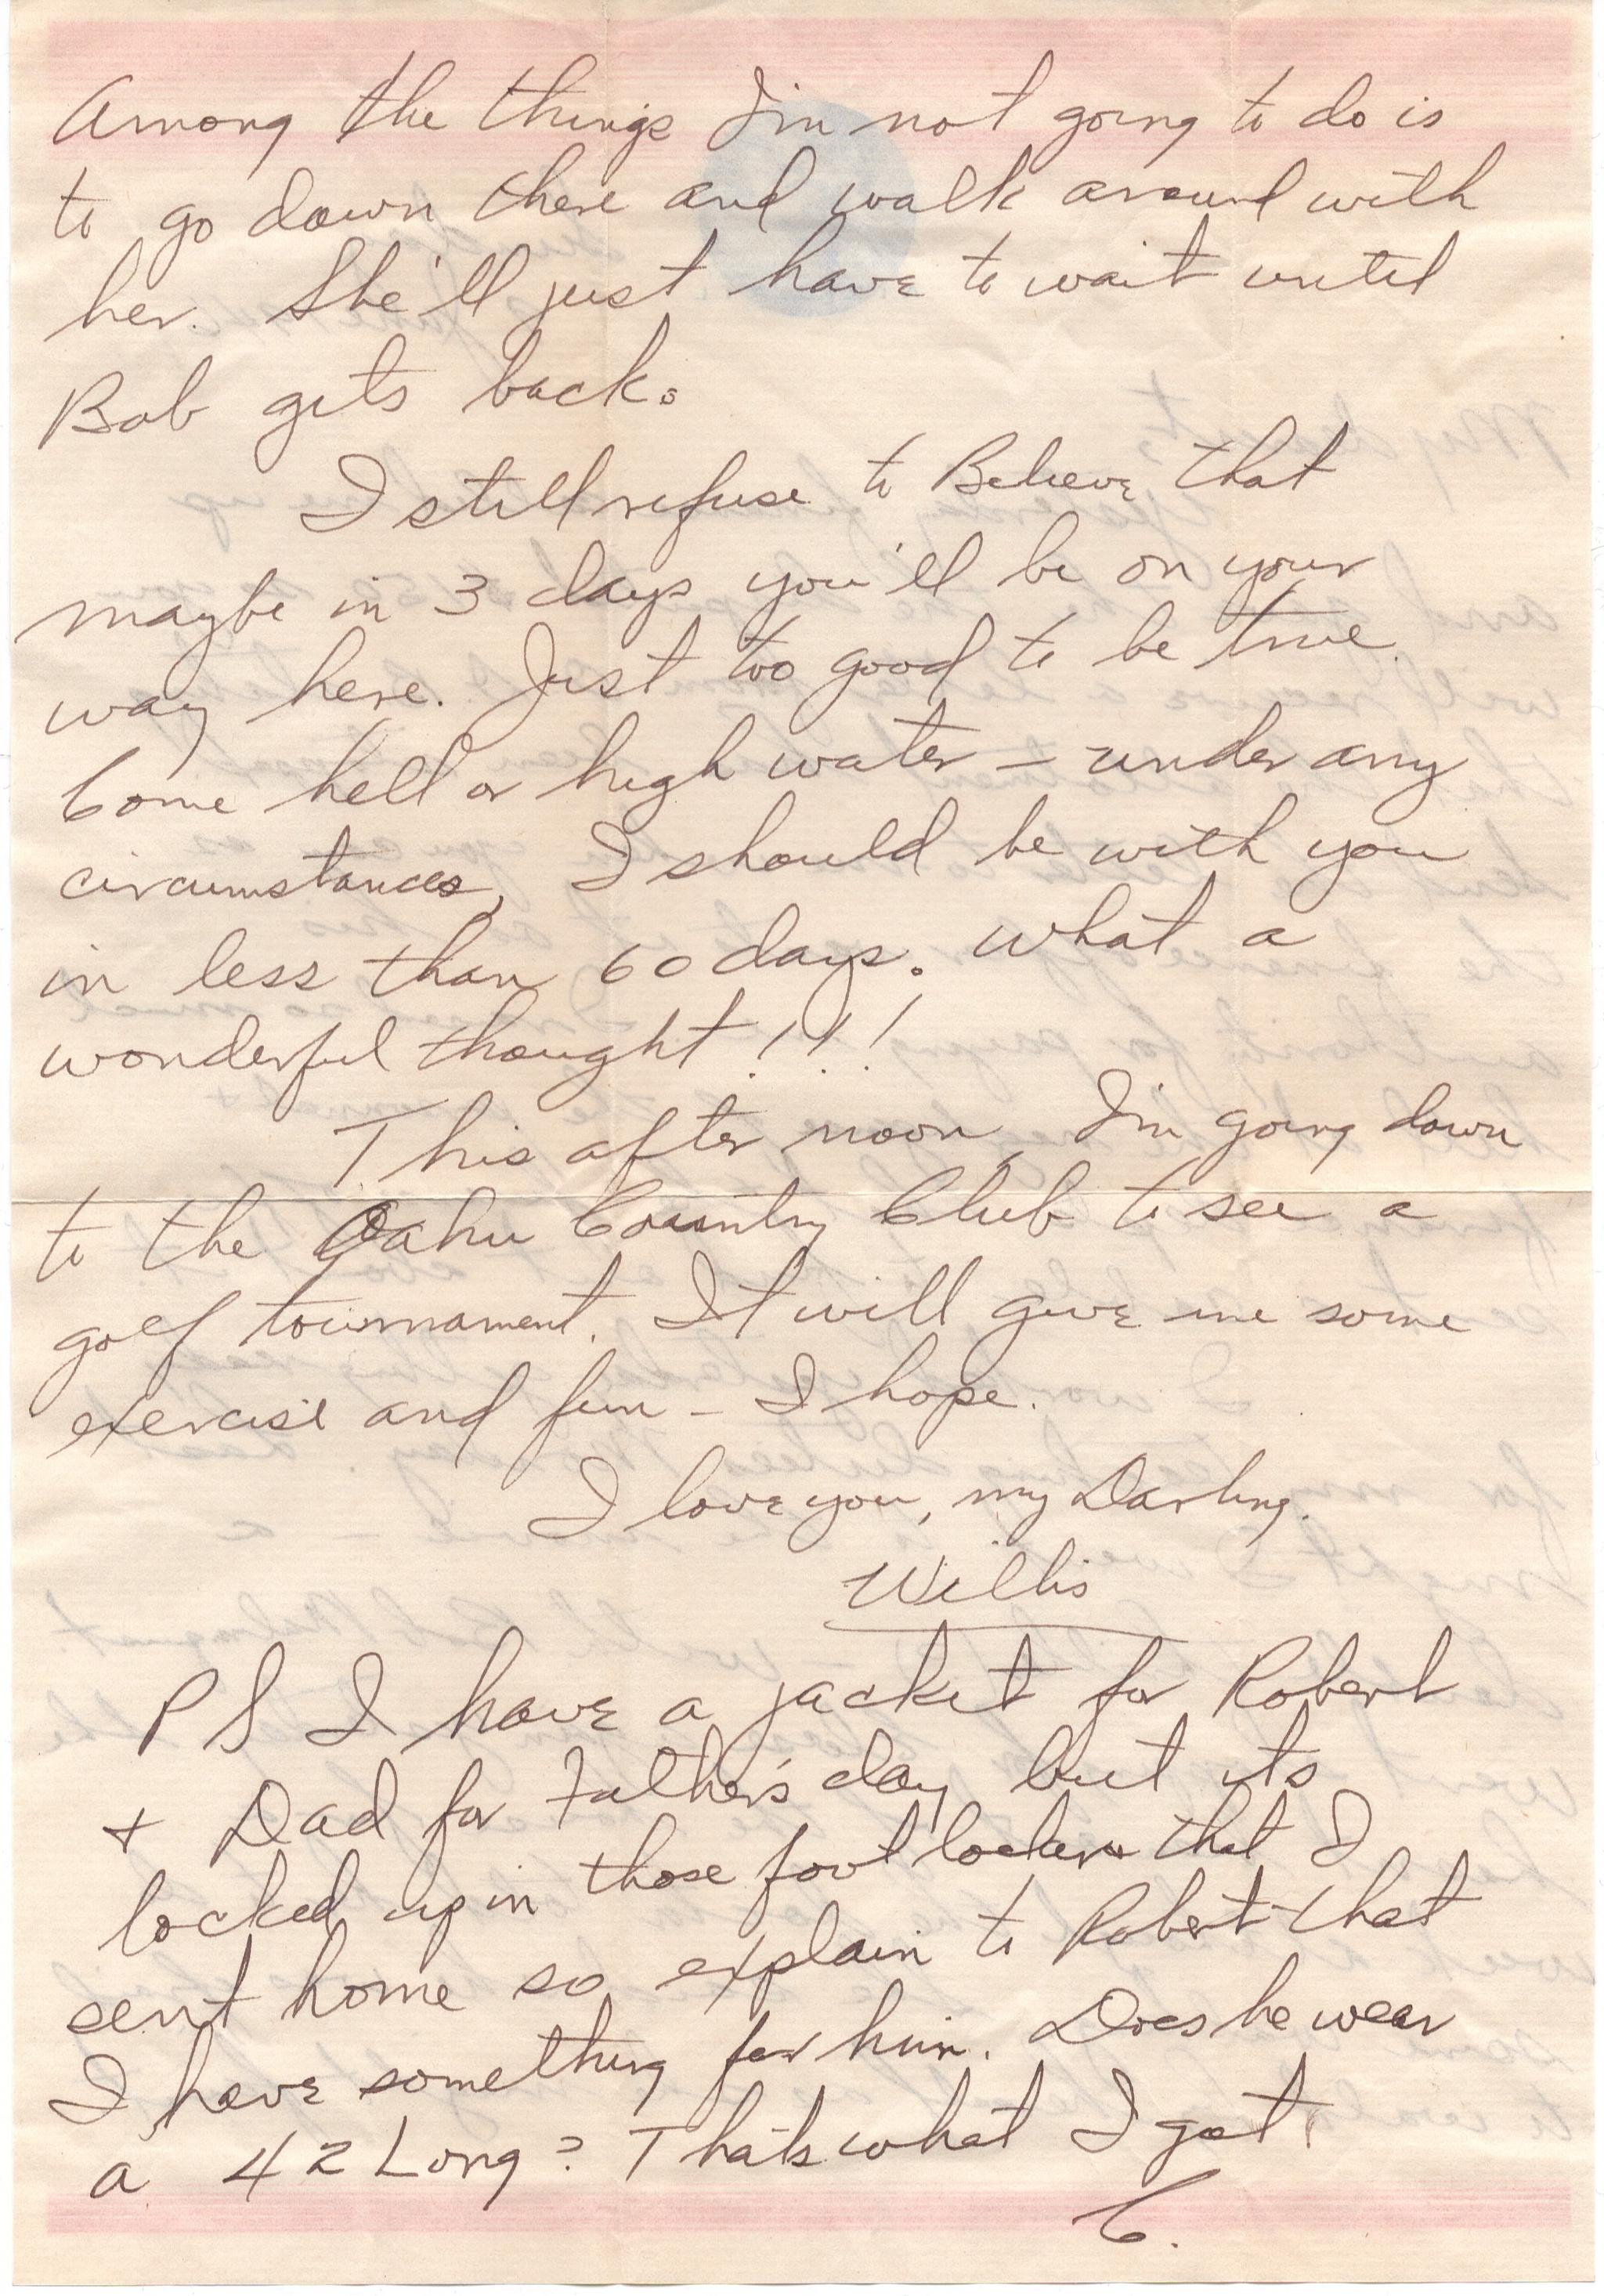 Among the things I'm not going to do is
to go down there and walk around with
her. She'll just have to wait until
Bob gets back.
I still refuse to Believe that
maybe in 3 days you'll be on your
way here. Just too good to be true.
Come hell or high water – under any
circumstances, I should be with you
in less than 60 days. What a
wonderful thought!!!
This after noon, I'm going down
to the Oahu Country Club to see a
golf tournament. It will give me some
exercise and fun – I hope.
I love you, my Darling.
Willis
PS I have a jacket for Robert
+ Dad for Father's day but its
locked up in those foot lockers that I
sent home so explain to Robert that
I have something for him. Does he wear
a 42 Long? That's what I got.
C.